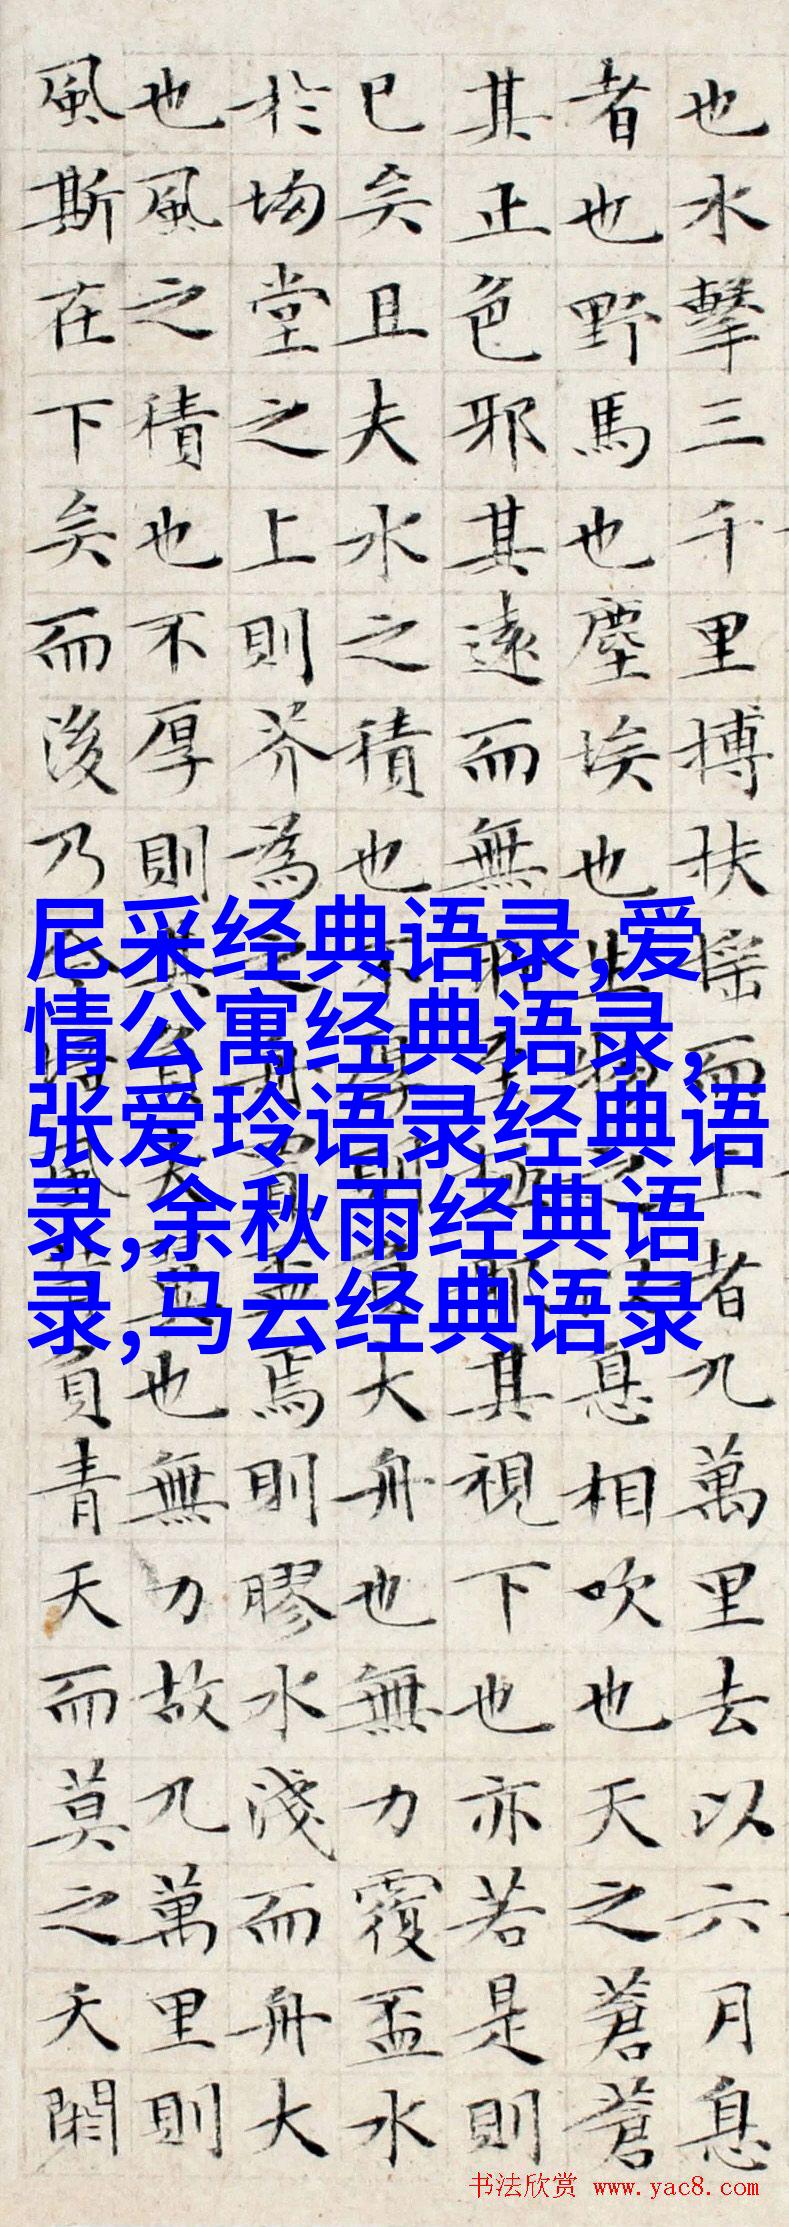 也水擊三千里搏扶揺而上者九萬里去以六月息
者也野馬也塵埃也生物之以息相吹也天之蒼蒼
其正色邪其遠而無所至極邪其視下也亦若是則
已矣且夫水之積也不厚則負大舟也無力覆盃水
於坳堂之上則芥為之舟置盃焉則膠水淺而舟大
也風之積也不厚則其負大翼也無力故九萬里則
風斯在下矣而後乃今培風背負青天而莫之夭閼
尼采经典语录,爱
情公寓经典语录,
张爱玲语录经典语
录,余秋雨经典语
录,马云经典语录
书法欣赏 www.yac8.com